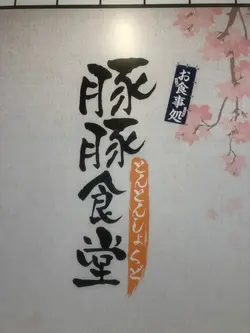 お食事処
豚豚食堂
とんとんしょくど